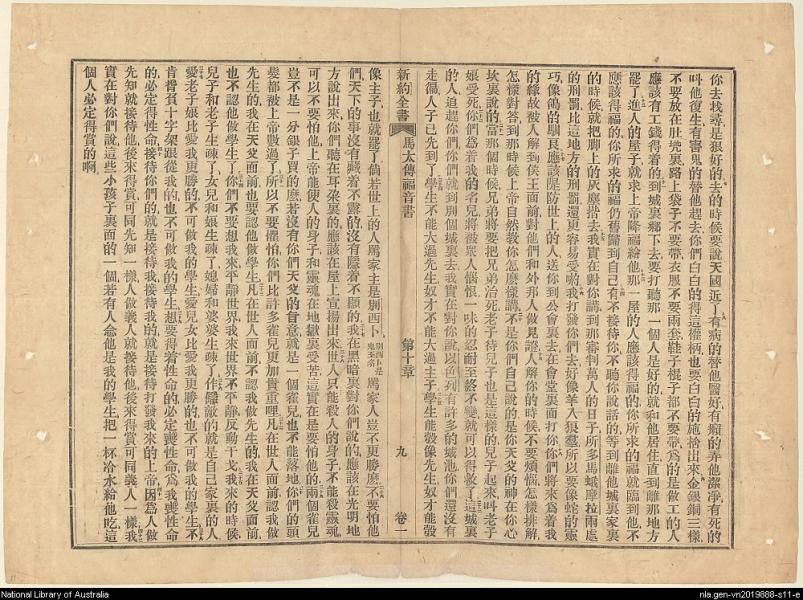 你去找尋是狠好的去的時候要說天國近了有病的替他醫好有癩的弄他潔凈有死的
叫他復生有害鬼的替他趕去你們白白的得這權柄也要白白的施捨出來金銀銅三樣
不要放在肚兜裏路上袋子不要帶衣服不要兩套鞋子棍子都不要帶爲的是做工的人
應該有工錢得着的到城裏鄉下去要打聽那一個人是好的就和他居住直到離那地方
罷了進人的屋子就求上帝降福給他那一屋的人應該得福的你所求的福就臨到他不
應該得福的你所求的福仍舊歸到自己有不接待你不聽你說話的等到離他城裏家裏
的時候就把脚上的灰塵撘去我實在對你講到那審判萬人的日子所多馬蛾摩拉兩處
的刑罰比這地方的刑罰還更容易受喲我打發你們去好像羊入狼羣所以要像蛇的靈
巧像鴿的馴良應該隄防世上的人送你到公會裏去在會堂裏面打你你們將來爲着我
的緣故被人解到侯王面前對他們和外邦人做見證人解你的時候不要煩惱怎樣排解
怎樣對答到那時候上帝自然教你怎麼樣講不是你們自己說的是你天父的神在你心
坎裏說的當那個時候兄弟將要把兄弟治死老子待兒子也是這樣的兒子起來叫老子
娘受死你們爲着我的名兒將被衆人惱恨一味的忍耐至終不變就可以得救了這城裏
的人追趕你們你們就到別個城裏去我實在對你說以色列有許多的城池你們還沒有
走徧人子已先到了學生不能大過先生奴才不能大過主子學生能彀像先生奴才能彀
新約全書
馬太傳福音書
第十章
九
卷一
像主子也就罷了倘若世上的人罵家主是別西卜
別西卜是鬼王名
罵家人豈不更勝麽不要怕他
們天下的事沒有藏着不露的沒有隱着不顯的我在黑暗裏對你們說的應該在光明地
方說出來你們聽在耳朶裏的應該在屋上宣揚出來世人只能殺人的身子不能殺靈魂
可以不要怕他上帝能使人的身子和靈魂在地獄裏受苦這實在是要怕他的兩個雀兒
豈不是一分銀子買的麽若沒有你們天父的旨意就是一個雀兒也不能落地你們的頭
髮都被上帝數過了所以不要懼怕你們比許多雀兒更加貴重哩凡在世人面前認我做
先生的我在天父面前也要認他做學生凡在世人面前不認我做先生的我在天父面前
也不認他做學生了你們不要想我來平靜世界我來世界不平靜反動干戈我來的時候
兒子和老子生疎了女兒和娘生疎了媳婦和婆婆生疎了作讎敵的就是自己家裏的人
愛老子娘比愛我更勝的不可做我的學生愛兒女比愛我更勝的也不可做我的學生不
肯背負十字架跟從我的也不可做我的學生想要得着性命的必定喪性命爲我喪性命
的必定得性命接待你們的就是接待我接待我的就是接待打發我來的上帝因爲人做
先知就接待他後來得賞可同先知一樣人做義人就接待他後來得賞可同義人一樣我
實在對你們說這些小孩子裏面的一個若有人念他是我的學生把一杯冷水給他吃這
個人必定得賞的啊
National Library of Australia
nla.gen-vn2019888-s11-e